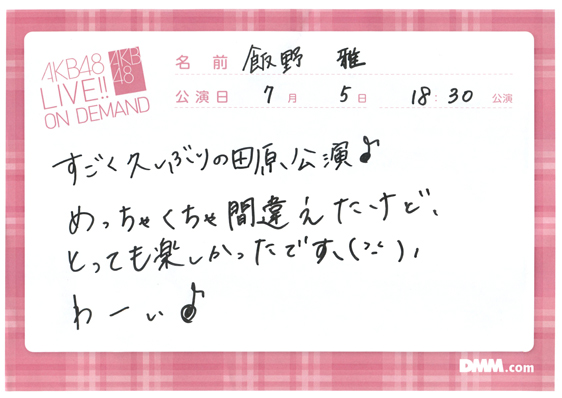 AKB48
LIVE!!
ON DEMAND
AKB
48
名前 飯野 雅
公演日 7月 5日 18:30 公演
すごく久しぶりの田原公演♪
めっちゃくちゃ間違えたけど、
とっても楽しかったです、
わーい♪
DMM.com